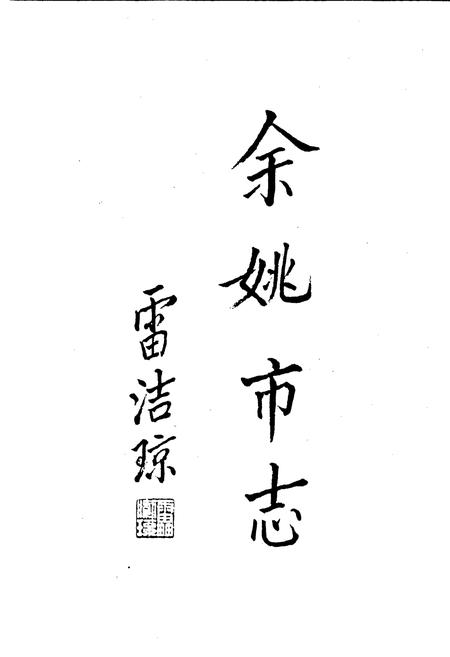 余姚市志
雷洁琼